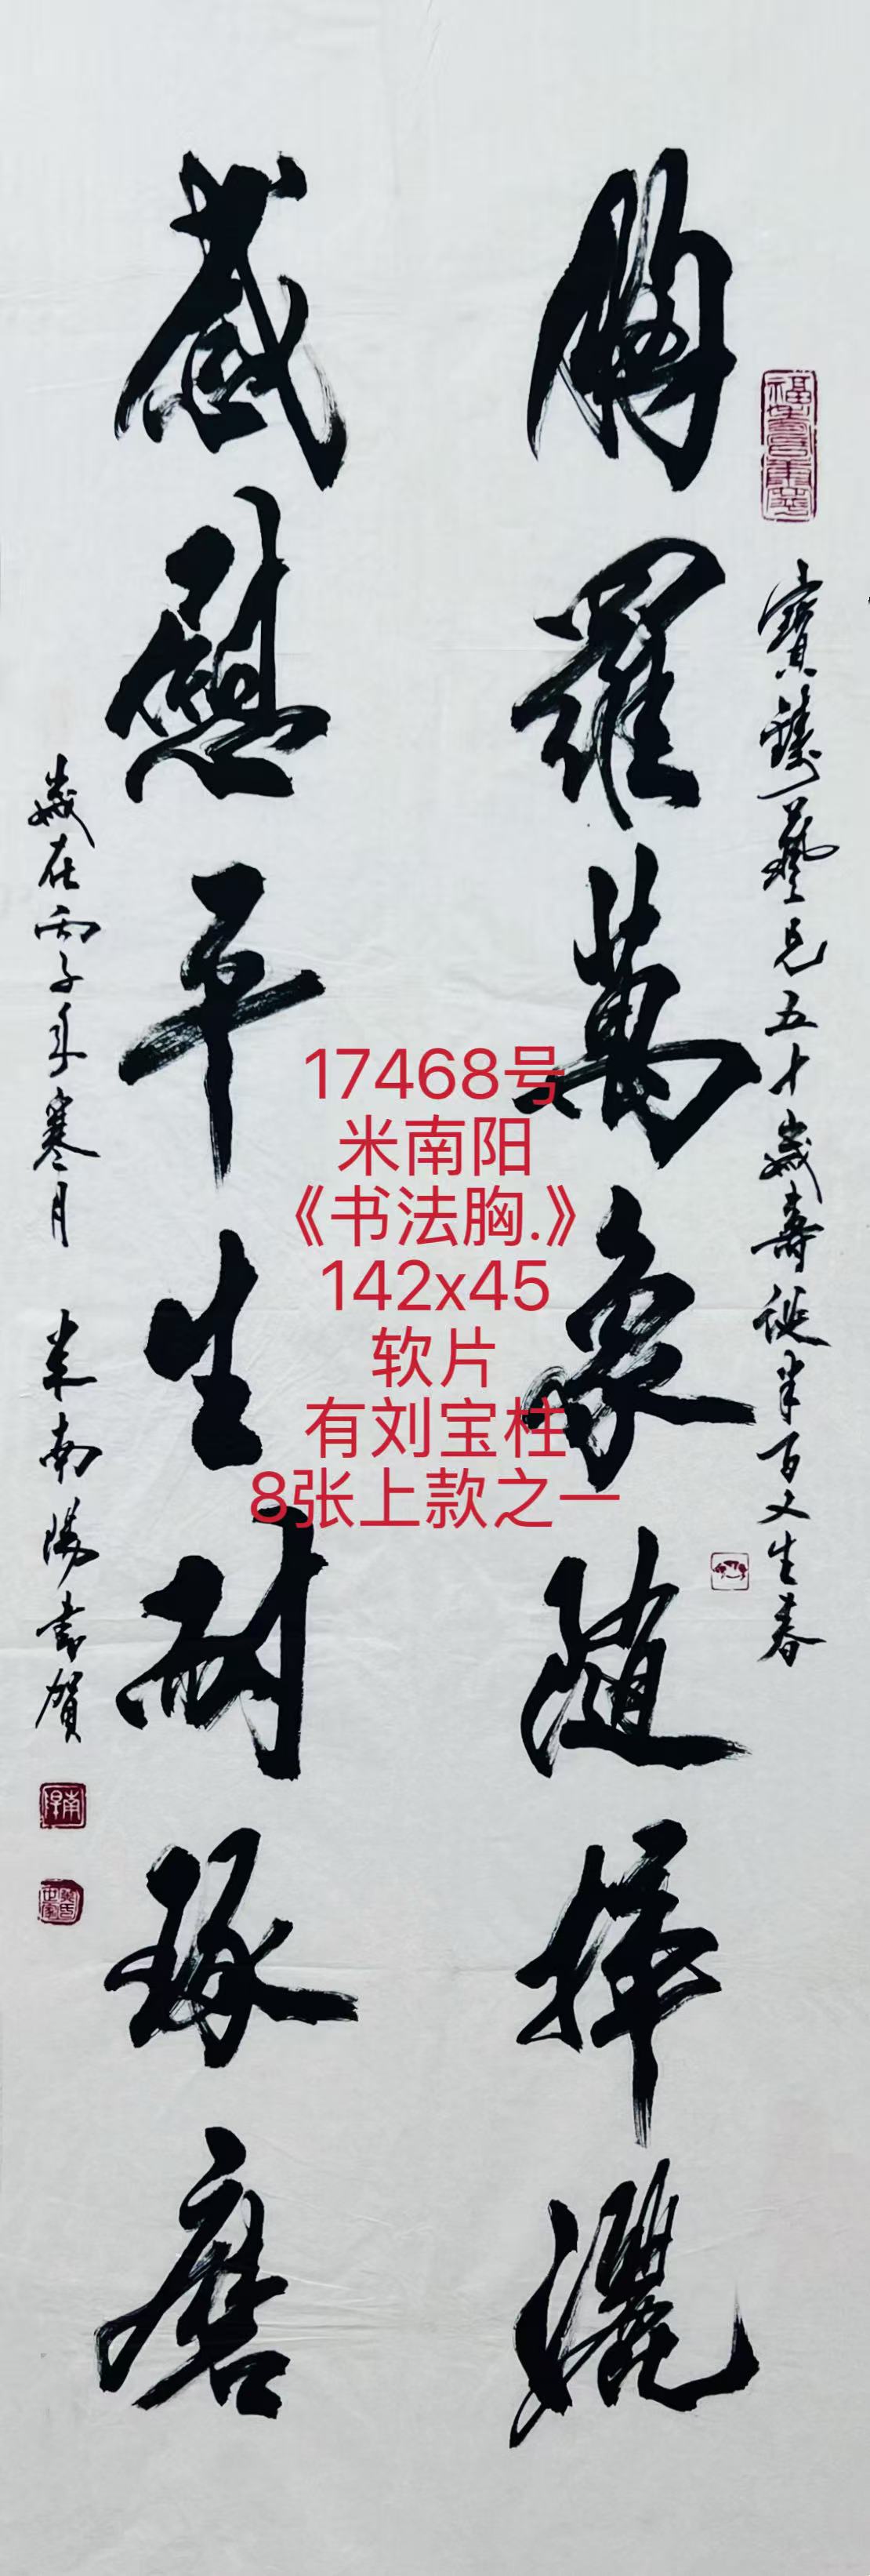 胸羅萬象随揮灑
感慰平生耐琢磨
藝兄五十歲壽誕半百又生春
歲在丙子年寒月 米南陽書賀
17468号
米南阳
《书法胸.》
142x45
软片
有刘宝柱
8张上款之一